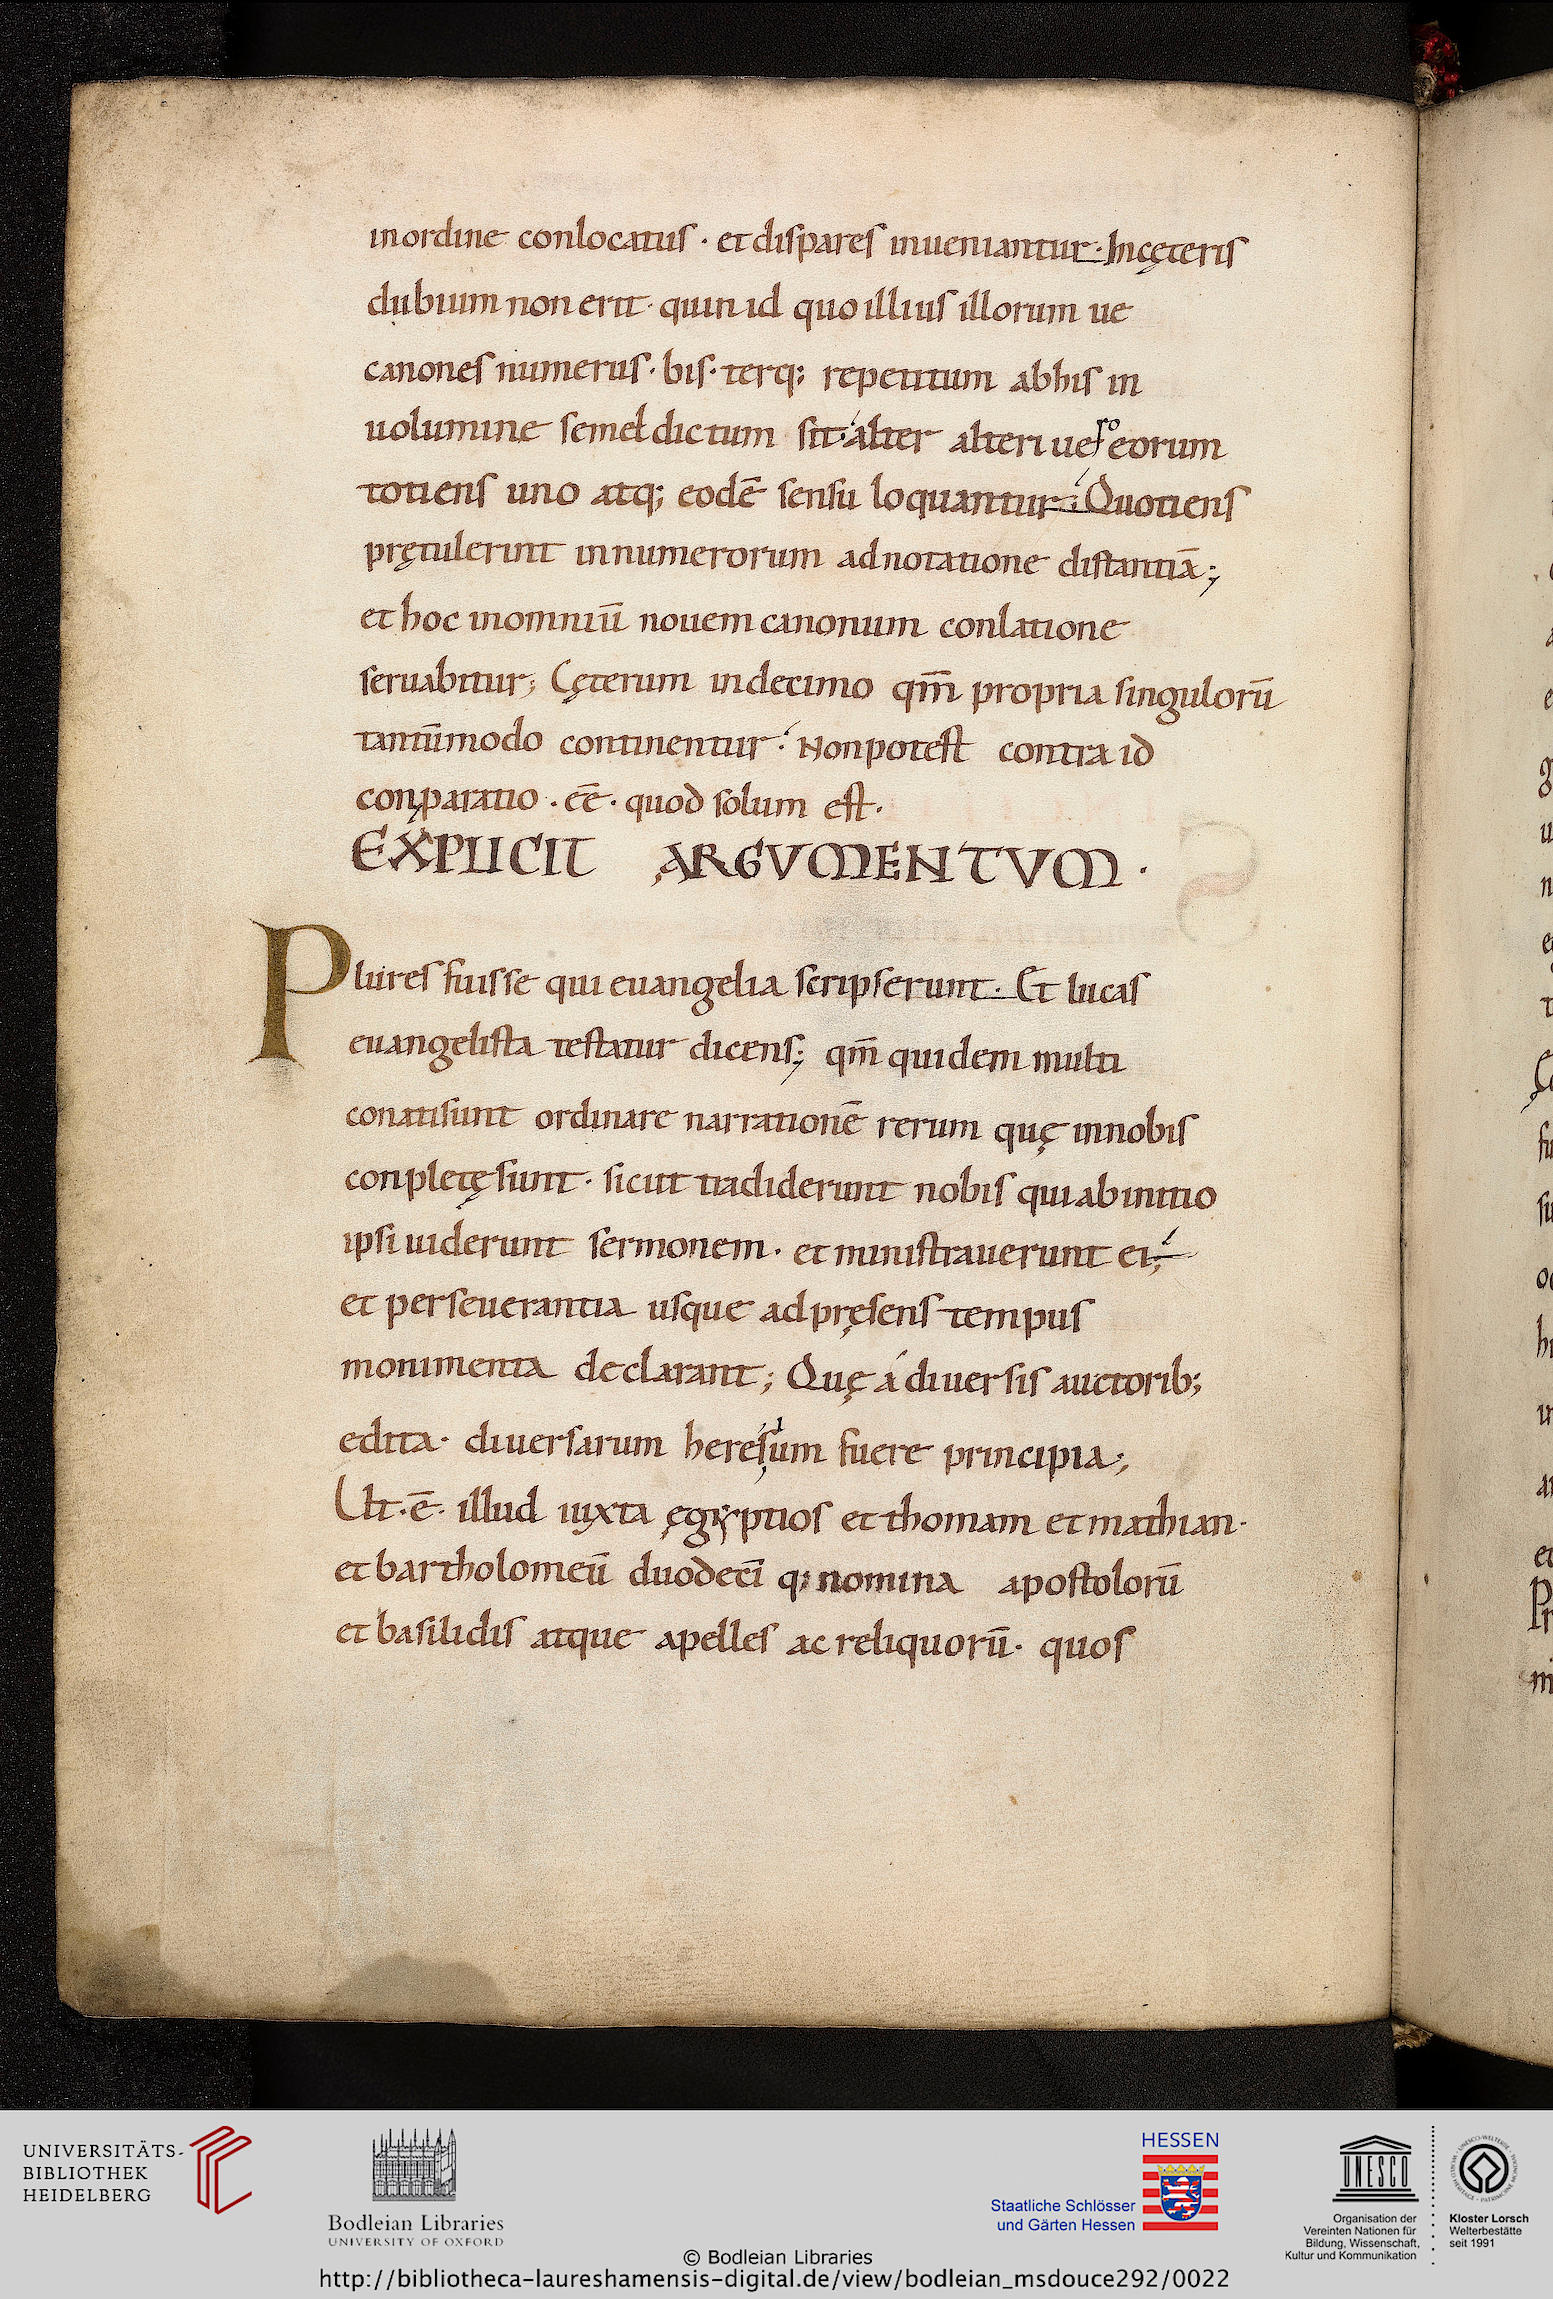 in ordine conlocatus · et dispares inueniantur · In cęteris
dubium non erit · quin id quo illius illorum ue
canones numerus · bis · terq; repetitum abhis in
uolumine semel dictum sit alter alteri ueſro eorum
totiens uno atq; eodē sensu loquantur Quotiens
prętulerint innumerorum adnotatione distantiā ;
et hoc inomniū nouem canonum conlatione
seruabitur ; Cęterum indecimo qm̄ propria singulorū
tantūmodo continentur · Non potest contra id
conparatio · eē · quod solum est ·
EXPLICIT ARGVMENTVM ·
Plures fuisse qui euangelia scripserunt · Et lucas
euangelista testatur dicens ; qm̄ quidem multi
conatisunt ordinare narrationē rerum quę innobis
conpletę sunt · sicut tradiderunt nobis qui abinitio
ipsi uiderunt sermonem · et ministrauerunt ei ;
et perseuerantia usque adpręsens tempus
monimenta declarant ; Quę á diuersis auctorib;
edita · diuersarum heresium fuere principia ;
Ut · ē · illud iuxta ęgyptios et thomam et mathian ·
et bartholomeū duodecī q; nomina apostolorū
et basilidis atque apelles ac reliquorū · quos
UNIVERSITÄTS-
BIBLIOTHEK
HEIDELBERG
Bodleian Libraries
UNIVERSITY OF OXFORD
HESSEN
Staatliche Schlösser
und Gärten Hessen
UNESCO
Organisation der
Vereinten Nationen für
Bildung, Wissenschaft,
Kultur und Kommunikation
Kloster Lorsch
Welterbestätte
seit 1991
© Bodleian Libraries
http://bibliotheca-laureshamensis-digital.de/view/bodleian_msdouce292/0022